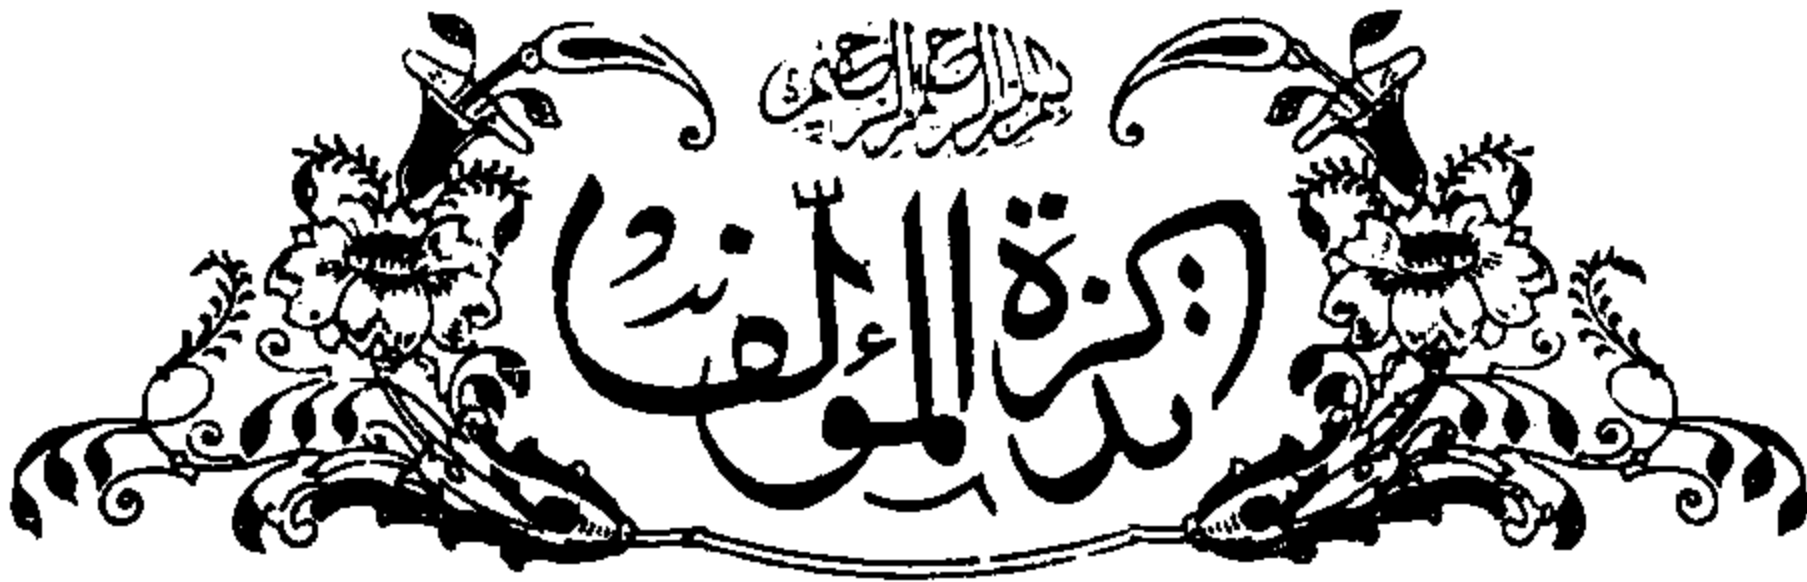 بسم الله الرحمن الرحيم
تذكرة المؤلف